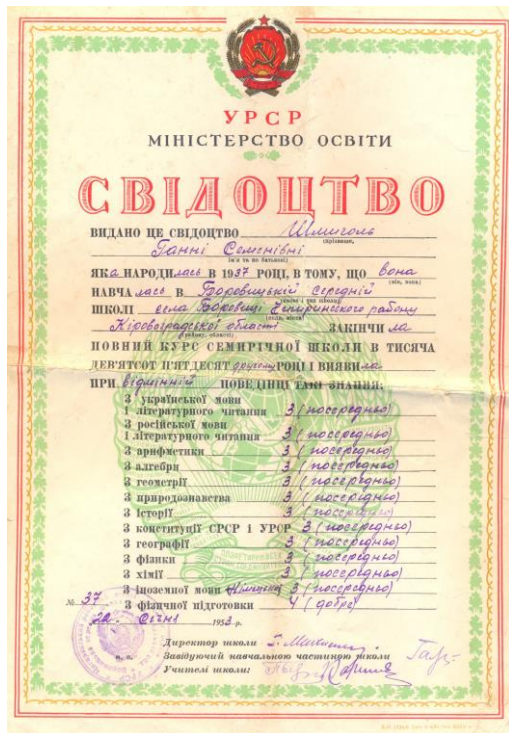 УРСР
МІНІСТЕРСТВО ОСВІТИ
СВІДОЦТВО
ВИДАНО ЦЕ СВІДОЦТВО Шмиголь
(прізвище,
Ганні Семенівні
ім'я та по батькові)
ЯКА НАРОДИлась В 1937 РОЦІ, В ТОМУ, ЩО вона
(він, вона)
НАВЧАлась В Боровицькій середній
(назва і тип школи)
ШКОЛІ села Боровиці
району
(села, міста)
Кіровоградської області ЗАКІНЧИла
(району, області)
ПОВНИЙ КУРС СЕМИРІЧНОЇ ШКОЛИ В ТИСЯЧА
ДЕВ'ЯТСОТ П'ЯТДЕСЯТ другому РОЦІ І ВИЯВИла
ПРИ відмінній ПОВЕДІНЦІ ТАКІ ЗНАННЯ:
З української мови
і літературного читання 3 (посередньо)
З російської мови
і літературного читання 3 (посередньо)
З арифметики 3 (посередньо)
З алгебри 3 (посередньо)
З геометрії 3 (посередньо)
З природознавства 3 (посередньо)
З історії 3 (посередньо)
З конституції СРСР і УРСР 3 (посередньо)
З географії 3 (посередньо)
З фізики 3 (посередньо)
З хімії 3 (посередньо)
З іноземної мови 3 (посередньо)
З фізичної підготовки 4 (добре)
№ 37
20. Січня 1953 р.
Директор школи
М. П.
Завідуючий навчальною частиною школи
Учителі школи: